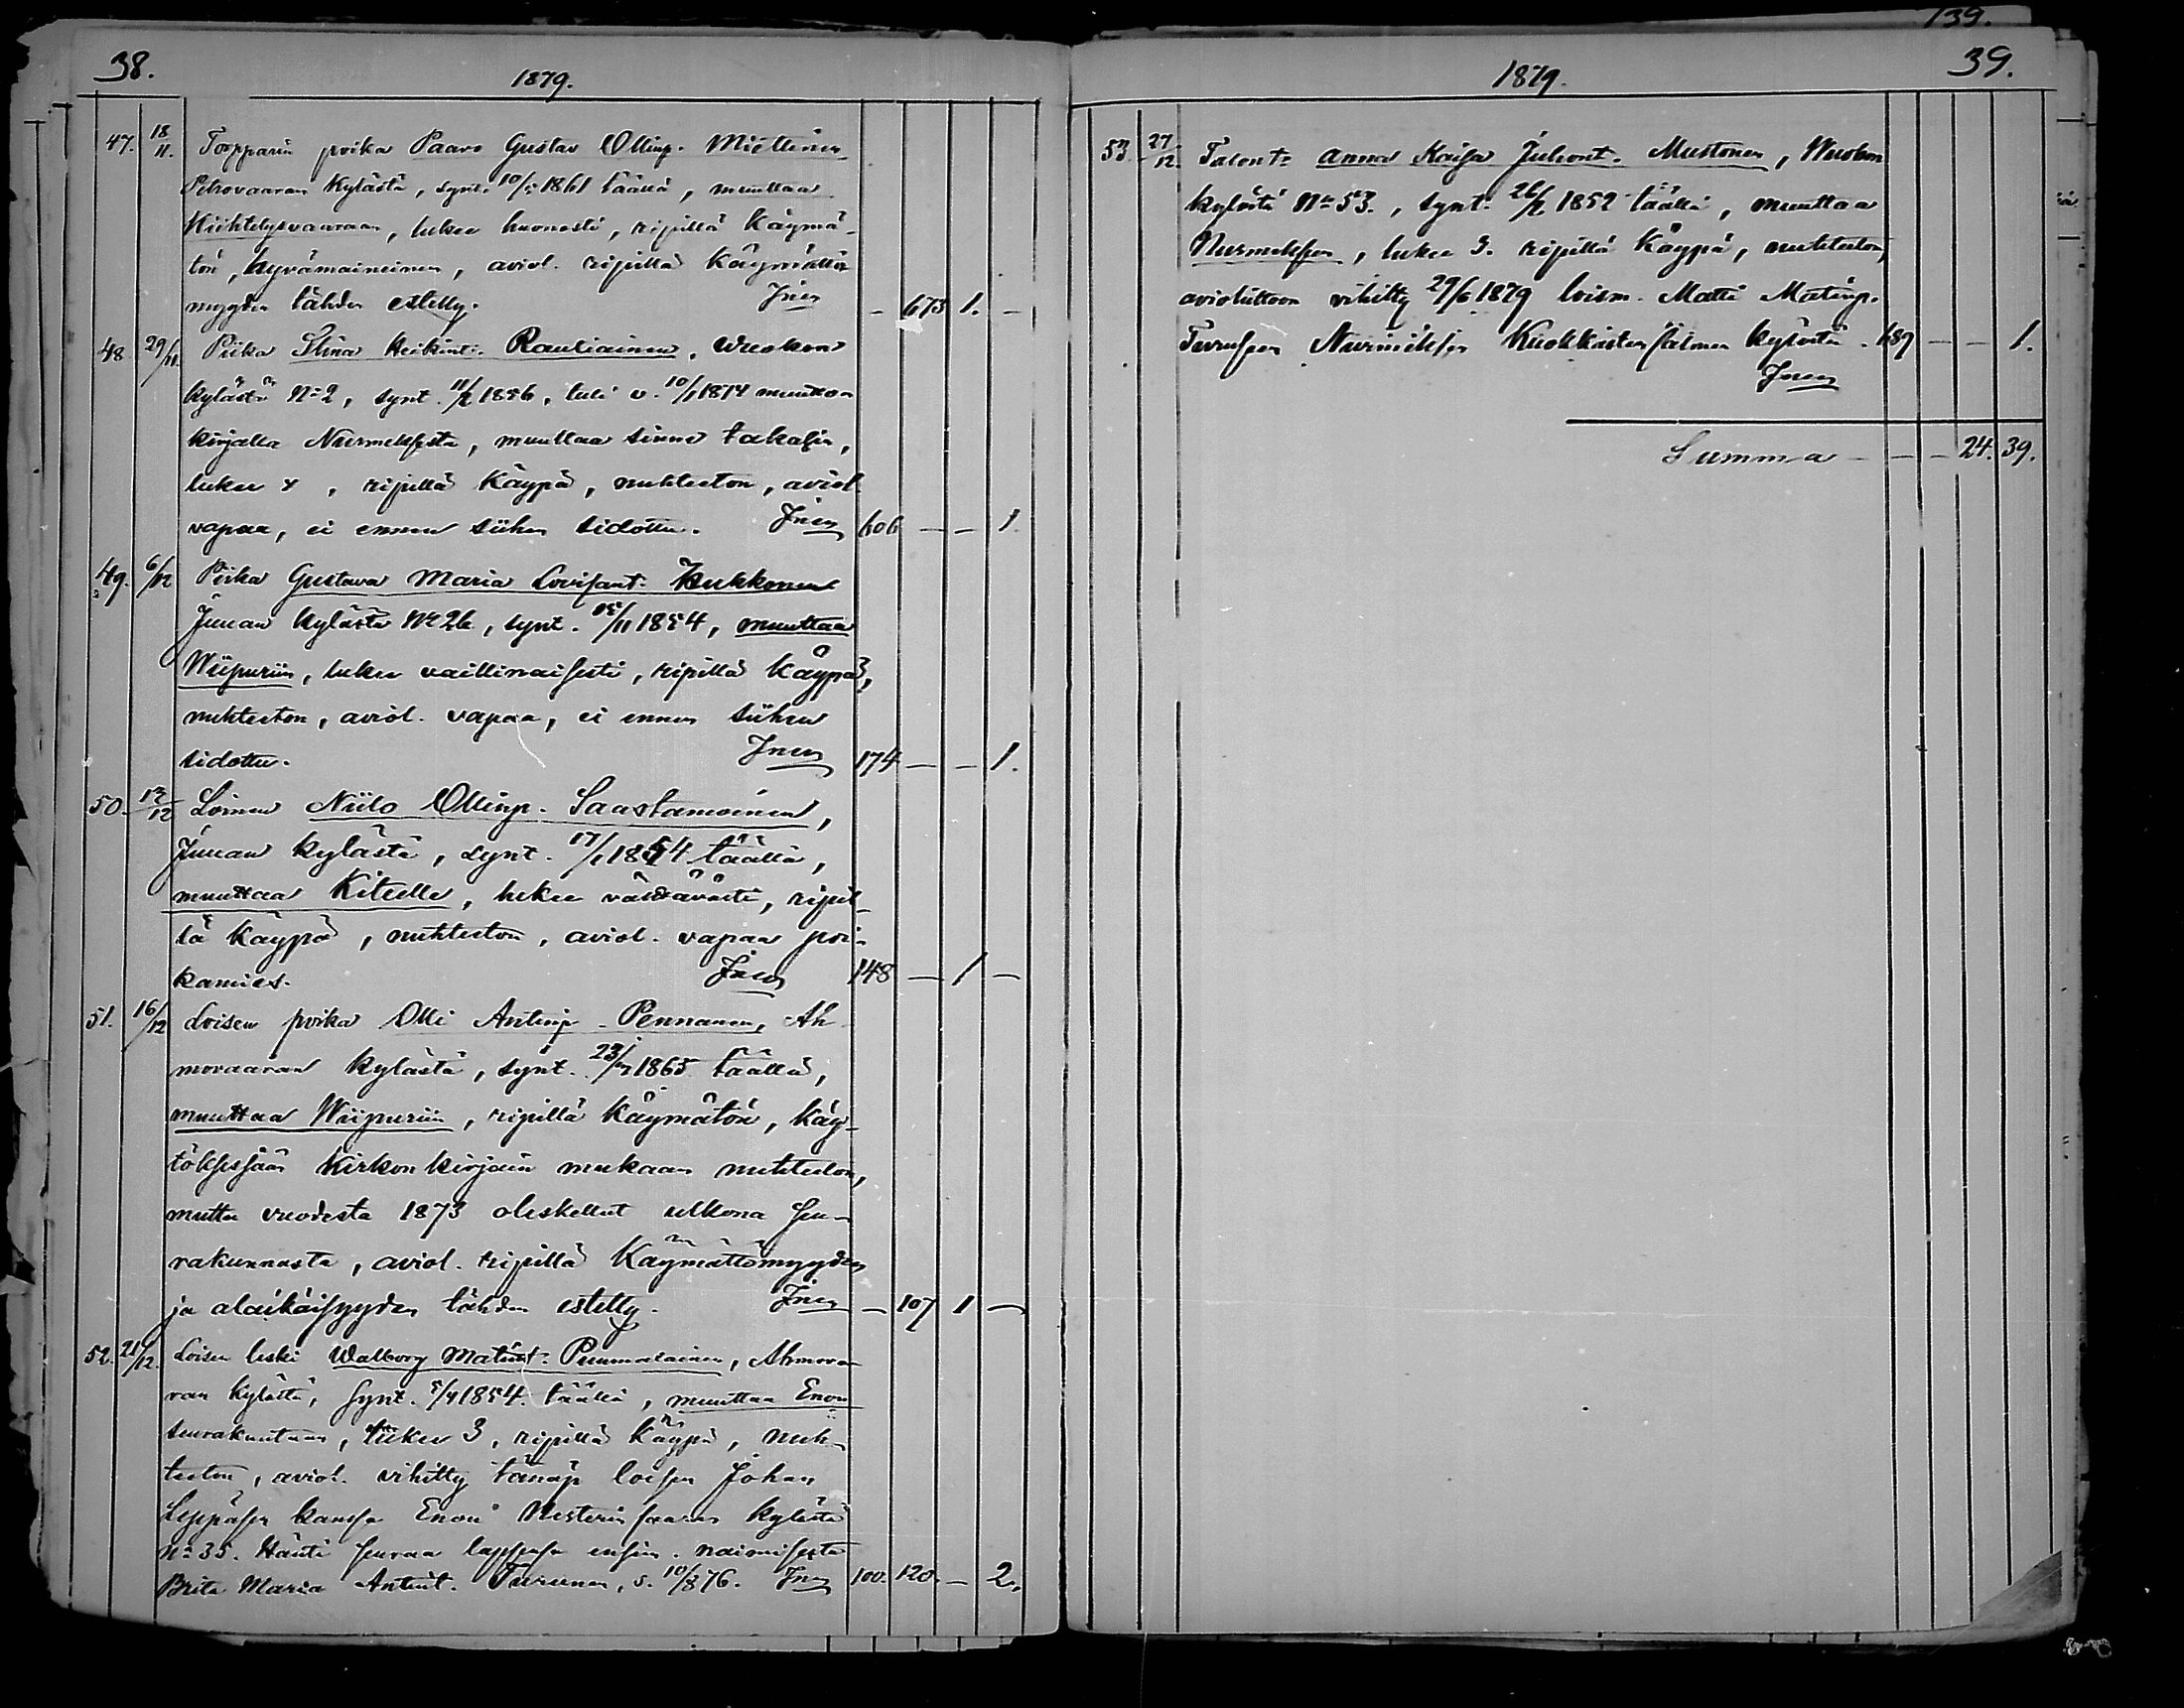 38.
1879.
47. 18/11. Torpparin poika Paavo Gustav Ollinp. Miettinen
Petrovaaran kylästä, synt. 10/5 1861 täällä, muuttaa
Kiihtelysvaaraan, lukee huonosti, ripillä käymä-
tön, hyvämaineinen, aviol. ripillä käymättö-
myyden tähden estetty. Jnen — 673 1. —
48 29/11. Piika Stina Heikint. Rautiainen, Wuokon
kylästä No 2, synt. 11/2 1856, tuli v. 10/1 1874 muutto-
kirjalla Nurmeksesta, muuttaa sinne takasin,
lukee 4, ripillä käypä, nuhteeton, aviol.
vapaa, ei ennen siihen sidottu. Jnen 606 — — 1.
49. 6/12 Piika Gustava Maria Lovisant. Kukkonen
Juuan kylästä No 26, synt. 15/11 1854, muuttaa
Wiipuriin, lukee vaillinaisesti, ripillä käypä,
nuhteeton, aviol. vapaa, ei ennen siihen
sidottu. Jnen 174 — — 1.
50. 12/12 Loinen Niilo Ollinp. Saastamoinen,
Juuan kylästä, synt. 17/1 1854 täällä,
muuttaa Kiteelle, lukee välttävästi, ripil-
lä käypä, nuhteeton, aviol. vapaa poi-
kamies. Jnen 148 — 1 —
51. 16/12 Loisen poika Olli Antinp. Pennanen, Ah-
movaaran kylästä, synt. 23/7 1865 täällä,
muuttaa Wiipuriin, ripillä käymätön, käy-
töksessään kirkonkirjain mukaan nuhteeton,
mutta vuodesta 1873 oleskellut ulkona seu-
rakunnasta, aviol. ripillä käymättömyyden
ja alaikäisyyden tähden estetty. Jnen — 107 1 —
52. 21/12. Loisen leski Walborg Matint. Puumalainen, Ahmovaa-
ran kylästä, synt. 5/4 1854 täällä, muuttaa Enon
seurakuntaan, lukee 3, ripillä käypä, nuh-
teeton, aviol. vihitty tänäp. loisen Johan
Leppäsen kanssa Enon Nesterinsaaren kylästä
No 35. Häntä seuraa lapsensa ensim. naimisesta
Brita Maria Antint. Turunen, s. 10/8 76. Jnen 100. 120. — 2.
139.
39.
1879.
53. 27/12. Talont. Anna Kaisa Juhont. Mustonen, Wuokon
kylästä No 53., synt. 26/2 1852 täällä, muuttaa
Nurmeksen, lukee 3. ripillä käypä, nuhteeton,
avioliittoon vihitty 29/6 1879 loism. Matti Matinp.
Turusen Nurmeksen Kuohkastensalmen kylästä. 689 — — 1.
Jnen
Summa — — — 24. 39.